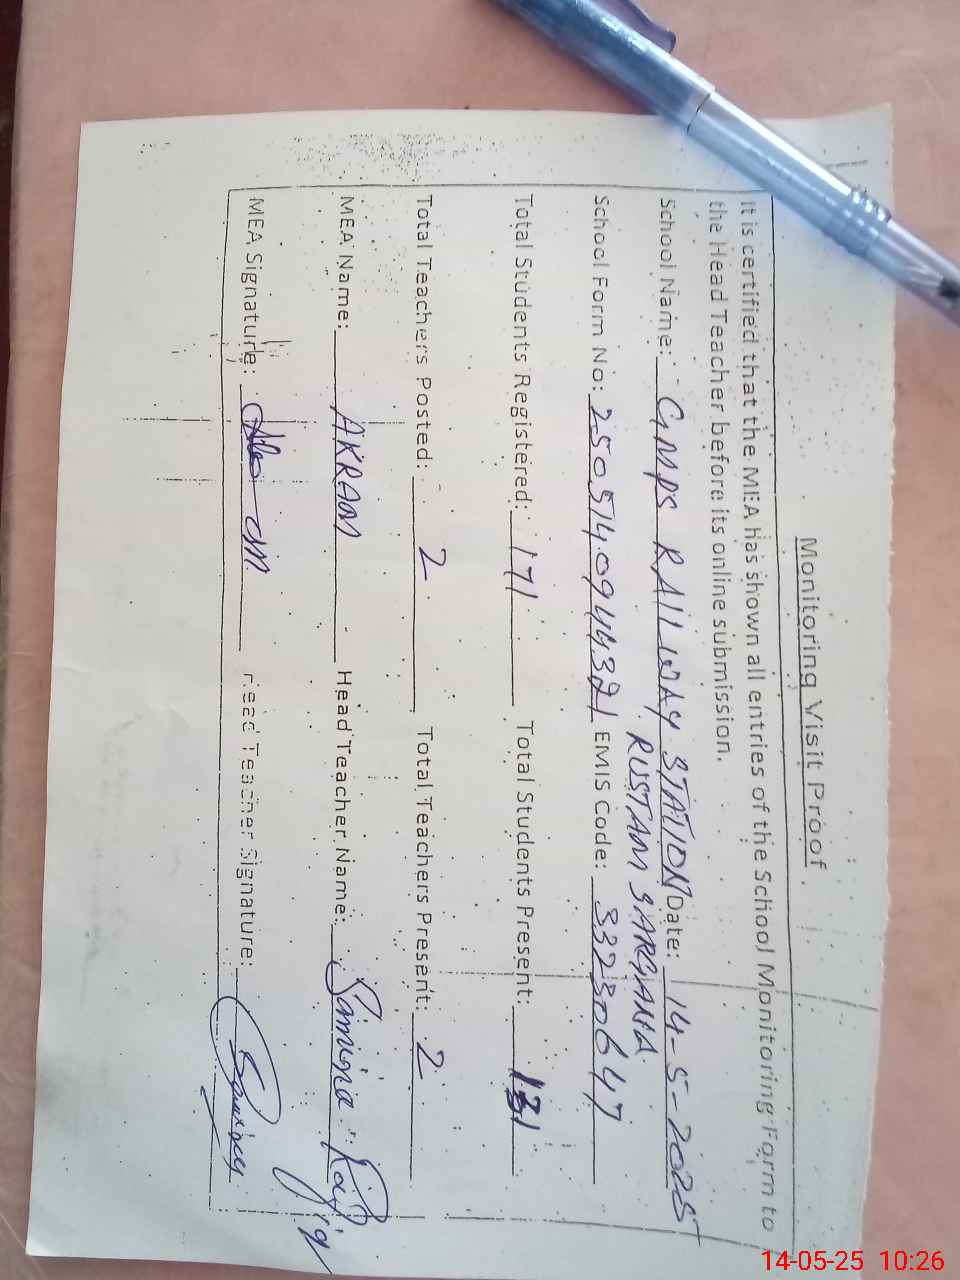 Monitoring Visit Proof
It is certified that the MEA has shown all entries of the School Monitoring Form to
the Head Teacher before its online submission.
School Name: GMPS RAILWAY STATION Date: 14-5-2025
RUSTAM SARGANA
School Form No: EMIS Code: 33230647
Total Students Registered: 171 Total Students Present: 131
Total Teachers Posted: 2 Total Teachers Present: 2
MEA Name: AKRAM Head Teacher Name: Samina
MEA Signature: Head Teacher Signature:
14-05-25 10:26